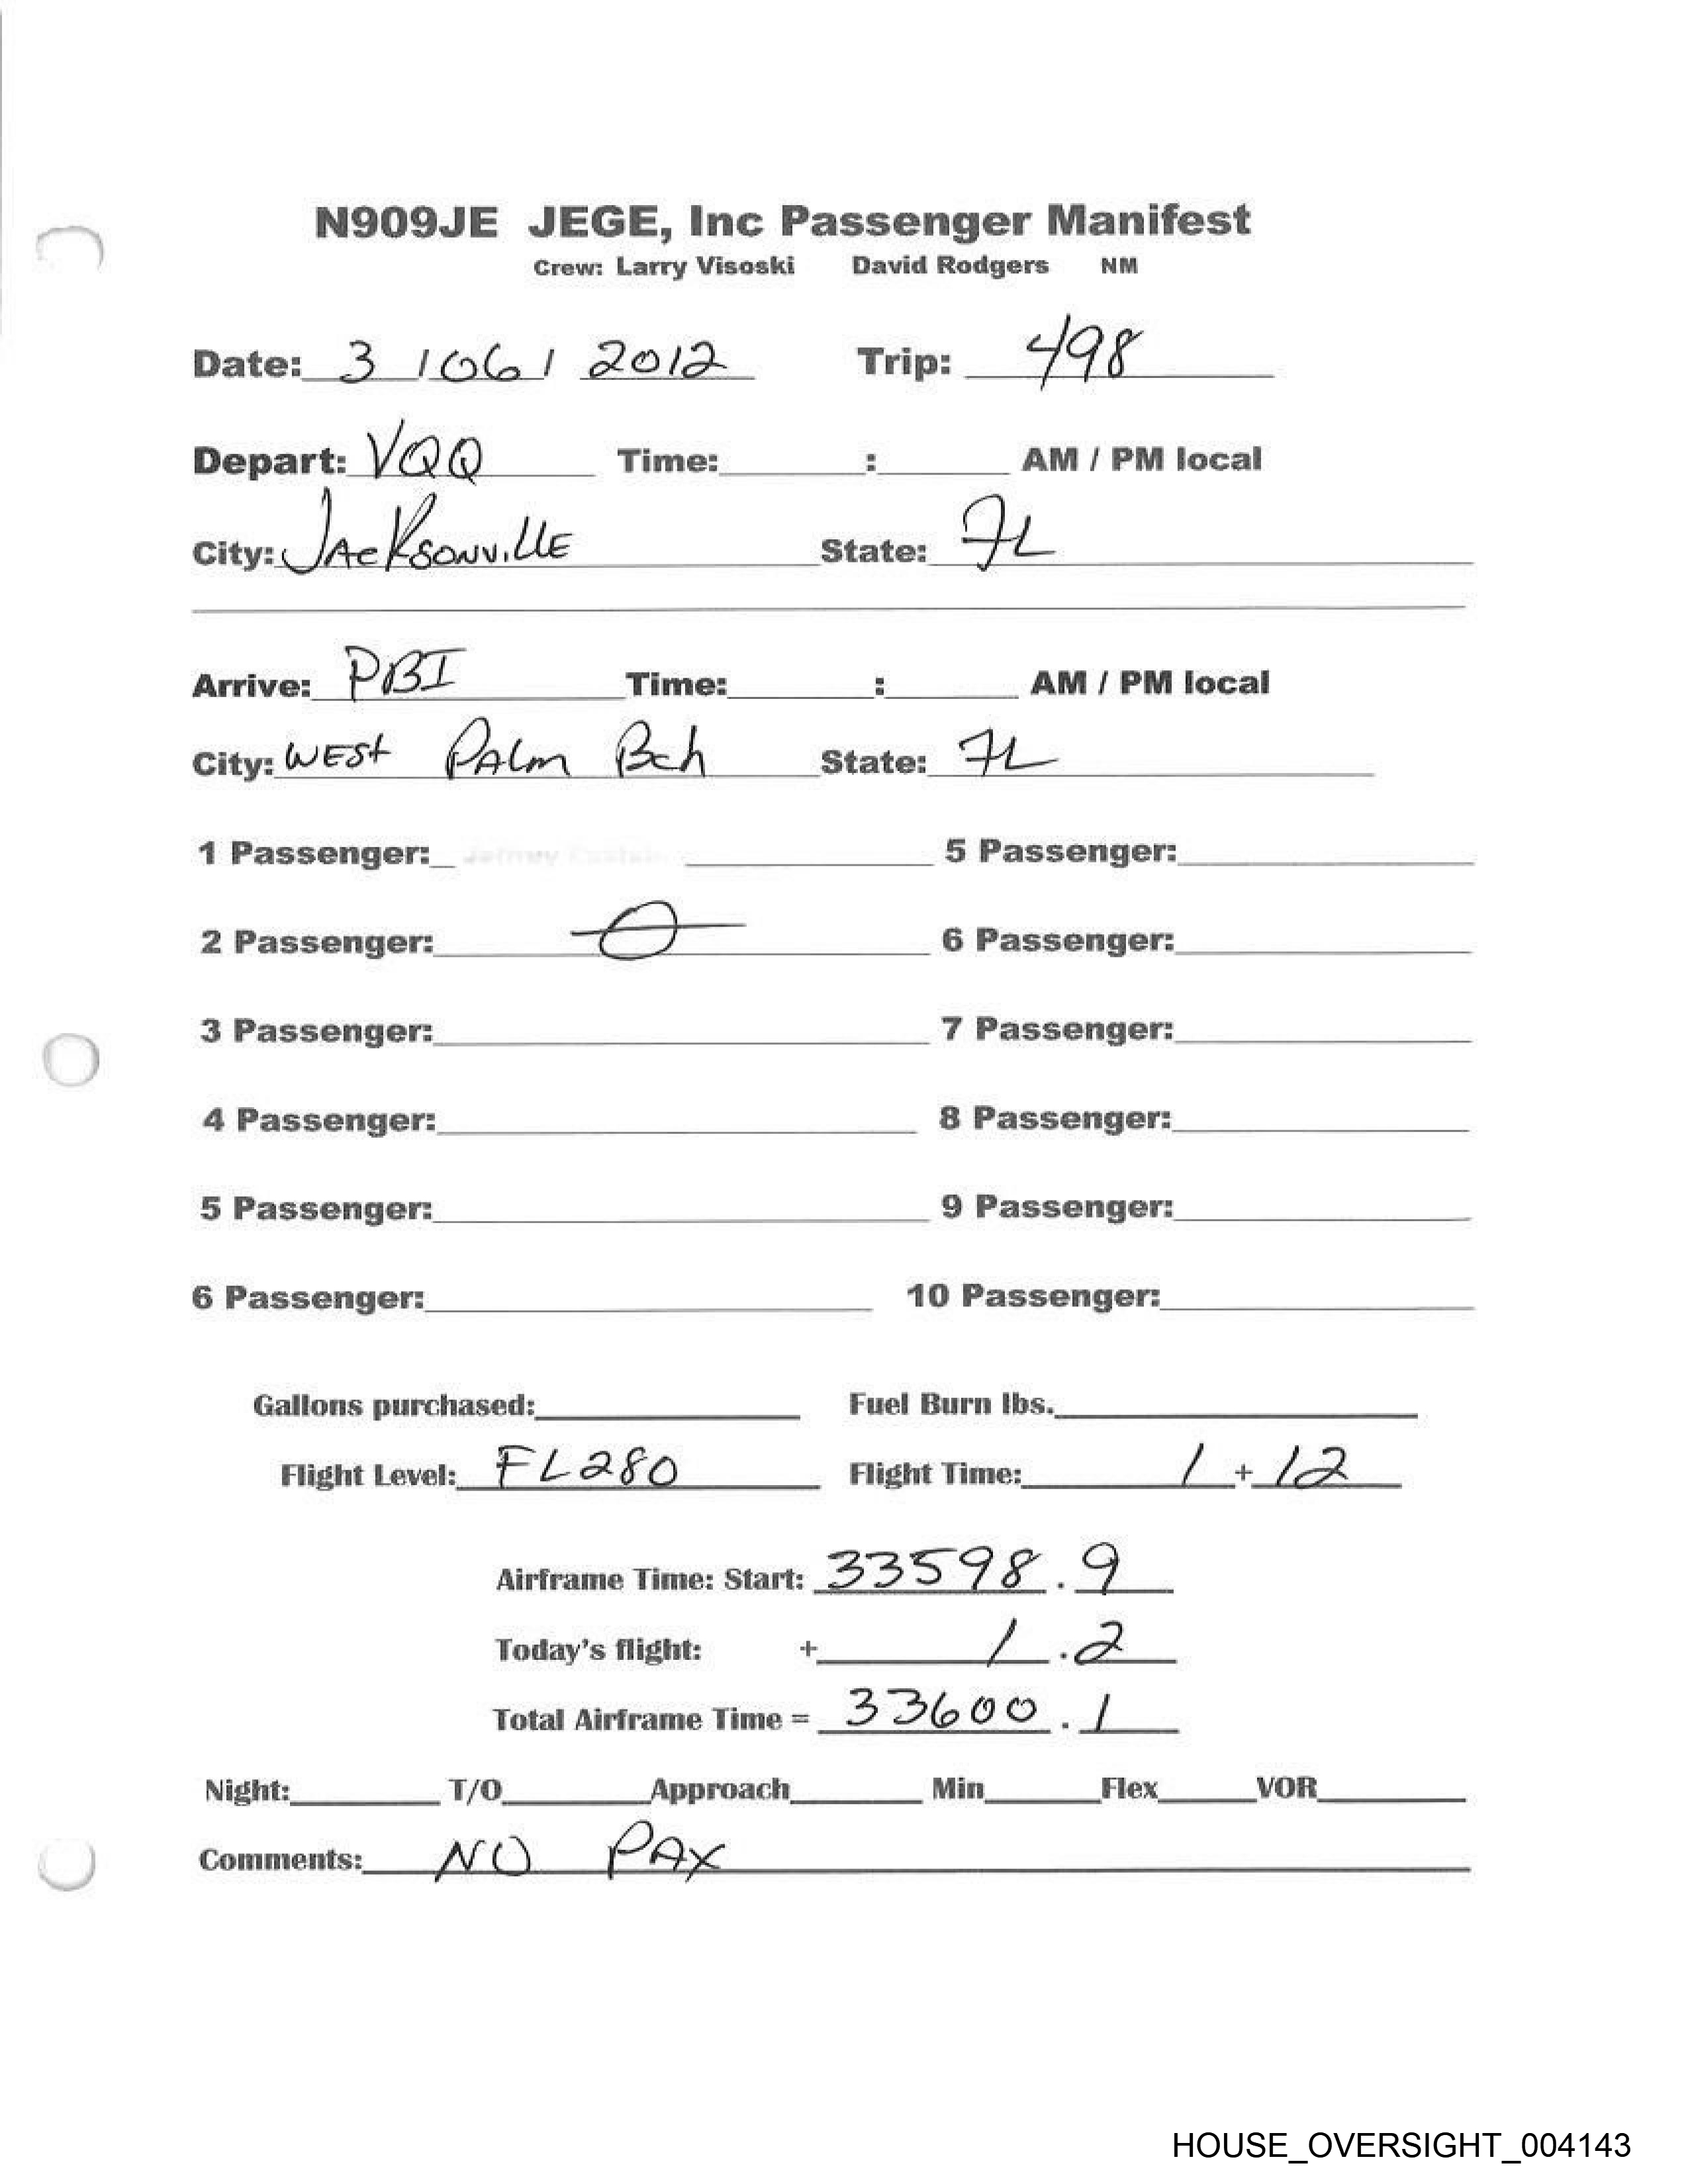 N909JE JEGE, Inc Passenger Manifest
Crew: Larry Visoski David Rodgers NM
Date: 3 / 06 / 2012 Trip: 498
Depart: VQQ Time: : AM / PM local
City: JAcKsonvillE State: FL
Arrive: PBI Time: : AM / PM local
City: WEst PAlm Bch State: FL
1 Passenger: 5 Passenger:
2 Passenger: 6 Passenger:
3 Passenger: 7 Passenger:
4 Passenger: 8 Passenger:
5 Passenger: 9 Passenger:
6 Passenger: 10 Passenger:
Gallons purchased: Fuel Burn lbs.
Flight Level: FL280 Flight Time: 1 + 12
Airframe Time: Start: 33598 . 9
Today's flight: + 1 . 2
Total Airframe Time = 33600 . 1
Night: T/O Approach Min Flex VOR
Comments: NO PAX
HOUSE_OVERSIGHT_004143